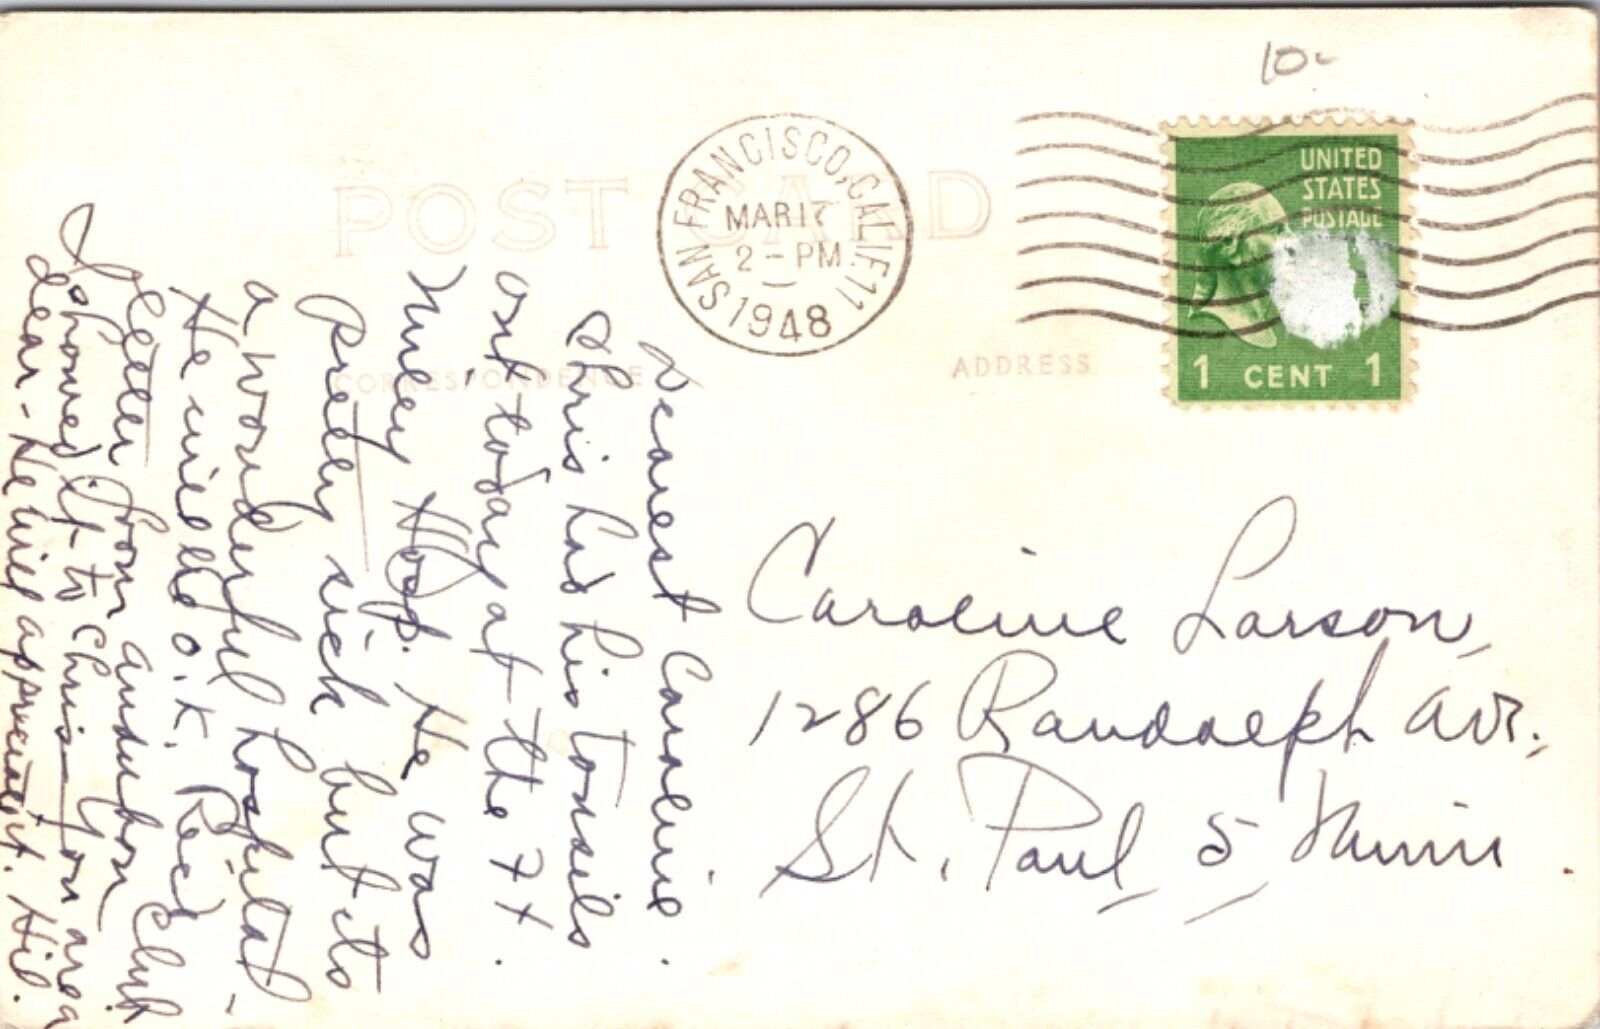 10-
POST CARD
SAN FRANCISCO, CALIF. 11
MAR 17
2 - PM
1948
UNITED
STATES
POSTAGE
1 CENT 1
CORRESPONDENCE
ADDRESS
Dearest Caroline.
Chris had his tonsils
out today at the Ft.
Miley Hosp. He was
pretty sick but its
a wonderful hospital -
He will be O.K. Rec'd
letter from Audubon Club
I showed it to Chris - You are a
dear - He will appreciate it. Hil.
Caroline Larson,
1286 Randolph Ave.,
St. Paul, 5, Minn.